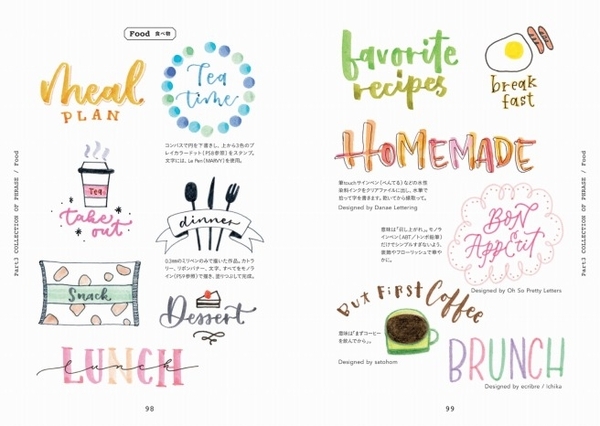 Food 食べ物
Meal
PLAN
Tea
time
コンパスで円を下書きし、上から3色のプ
レイカラードット(P58参照)をスタンプ。
文字には、Le Pen(MARVY)を使用。
Tea
take
out
dinner
0.3mmのミリペンのみで描いた作品。カトラ
リー、リボンバナー、文字、すべてをモノラ
イン(P59参照)で描き、塗りつぶして完成。
Snack
Dessert
LUNCH
98
Part3 COLLECTION OF PHRASE / Food
favorite
recipes
break
fast
HOMEMADE
筆touchサインペン(ぺんてる)などの水性
染料インクをクリアファイルに出し、水筆で
拾って字を書きます。乾いてから縁取って。
Designed by Danae Lettering
BON
Appétit
意味は「召し上がれ」。モノラ
インペン(ABT/トンボ鉛筆)
だけでシンプルすぎないよう、
装飾やフローリッシュで華や
かに。
Designed by Oh So Pretty Letters
But First Coffee
意味は「まずコーヒー
を飲んでから」。
Designed by satohom
BRUNCH
Designed by ecribre / ichika
99
Part3 COLLECTION OF PHRASE / Food